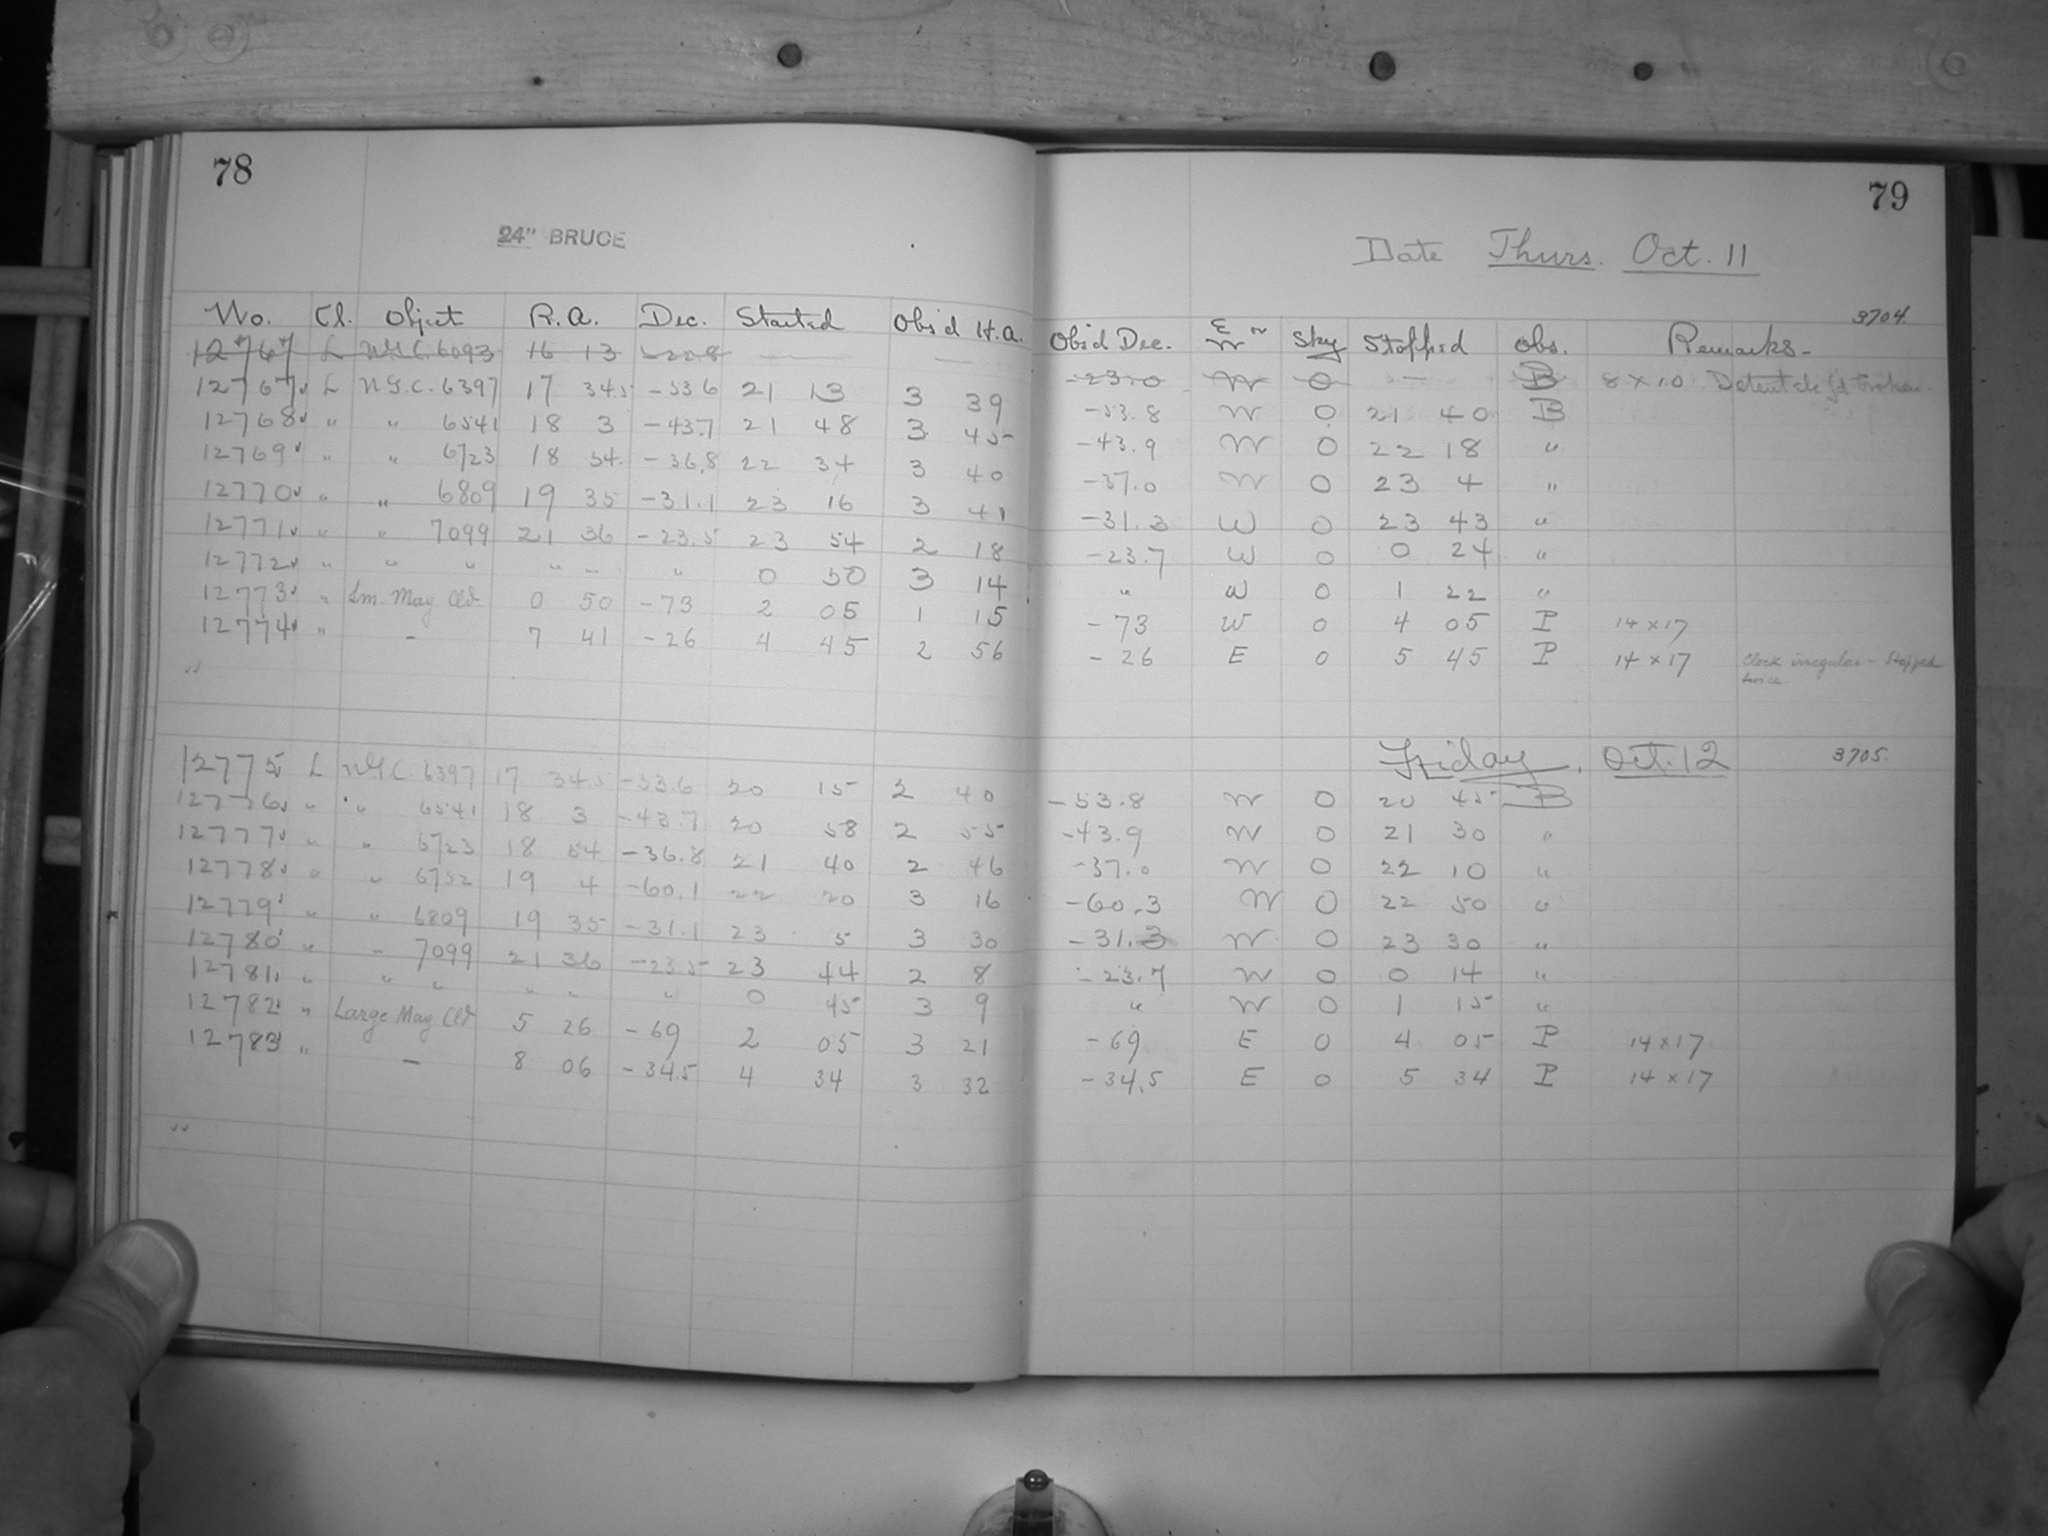 78
79
24" BRUCE
Date Thurs. Oct. 11
3704.
No. Cl. Object R.A. Dec. Started Obs'd H.A. Obs'd Dec. E or W Sky Stopped Obs. Remarks-
12767 L N.G.C. 6093 16 13 -22.8 -23.0 W 0 B 8 x 10 broken
12767 L N.G.C. 6397 17 34.5 -53.6 21 13 3 39 -53.8 W 0 21 40 B
12768 " " 6541 18 3 -43.7 21 48 3 45 -43.9 W 0 22 18 "
12769 " " 6723 18 54. -36.8 22 34 3 40 -37.0 W 0 23 4 "
12770 " " 6809 19 35 -31.1 23 16 3 41 -31.3 W 0 23 43 "
12771 " " 7099 21 36 -23.5 23 54 2 18 -23.7 W 0 0 24 "
12772 " " " " " " 0 50 3 14 " W 0 1 22 "
12773 " Sm. Mag Cld 0 50 -73 2 05 1 15 -73 W 0 4 05 P 14 x 17
12774 " - 7 41 -26 4 45 2 56 -26 E 0 5 45 P 14 x 17 Clock irregular - Stopped twice
Friday, Oct. 12 3705.
12775 L N.G.C. 6397 17 34.5 -53.6 20 15 2 40 -53.8 W 0 20 45 B
12776 " " 6541 18 3 -43.7 20 58 2 55 -43.9 W 0 21 30 "
12777 " " 6723 18 54 -36.8 21 40 2 46 -37.0 W 0 22 10 "
12778 " " 6752 19 4 -60.1 22 20 3 16 -60.3 W 0 22 50 "
12779 " " 6809 19 35 -31.1 23 5 3 30 -31.3 W 0 23 30 "
12780 " - 7099 21 36 -23.5 23 44 2 8 -23.7 W 0 0 14 "
12781 " " " " " " 0 45 3 9 " W 0 1 15 "
12782 " Large Mag Cld 5 26 -69 2 05 3 21 -69 E 0 4 05 P 14 x 17
12783 " - 8 06 -34.5 4 34 3 32 -34.5 E 0 5 34 P 14 x 17